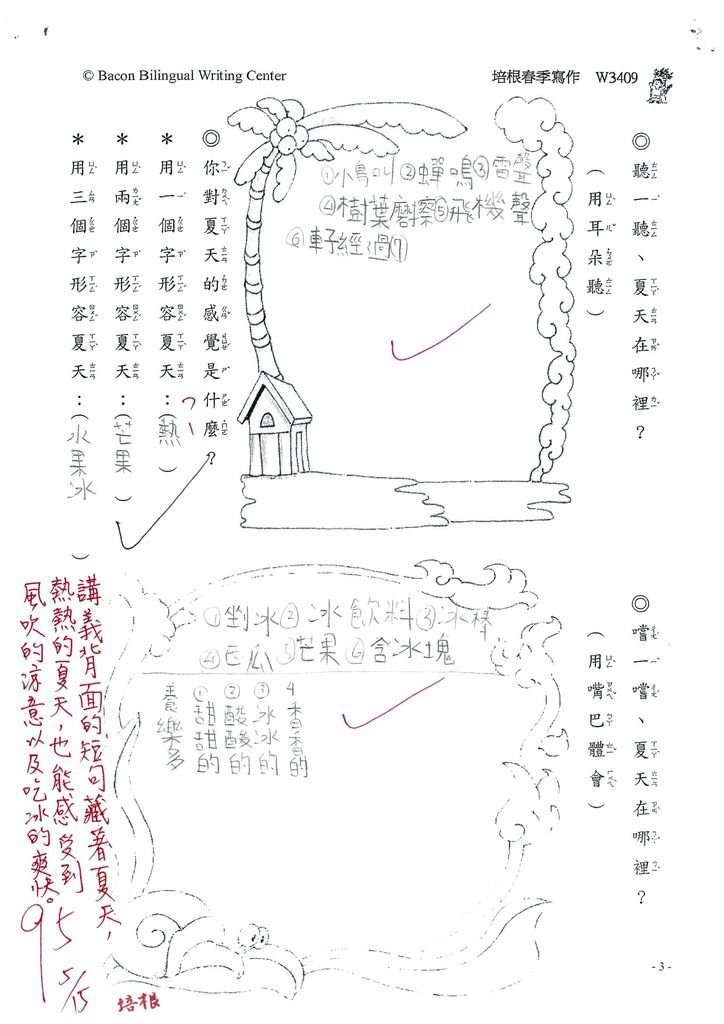 © Bacon Bilingual Writing Center
培根春季寫作 W3409
◎聽一聽、夏天在哪裡？
（用耳朵聽）
①小鳥叫②蟬鳴③雷聲
④樹葉磨擦⑤飛機聲
⑥車子經過⑦
◎你對夏天的感覺是什麼？
＊用一個字形容夏天：（熱）
＊用兩個字形容夏天：（芒果）
＊用三個字形容夏天：（水果冰）
◎嚐一嚐、夏天在哪裡？
（用嘴巴體會）
①剉冰②冰飲料③冰棒
④西瓜⑤芒果⑥含冰塊
養樂多
①甜甜的
②酸酸的
③冰冰的
4香香的
講義背面的短句藏著夏天，
熱熱的夏天，也能感受到
風吹的涼意以及吃冰的爽快。
95
5/15
培根
- 3 -